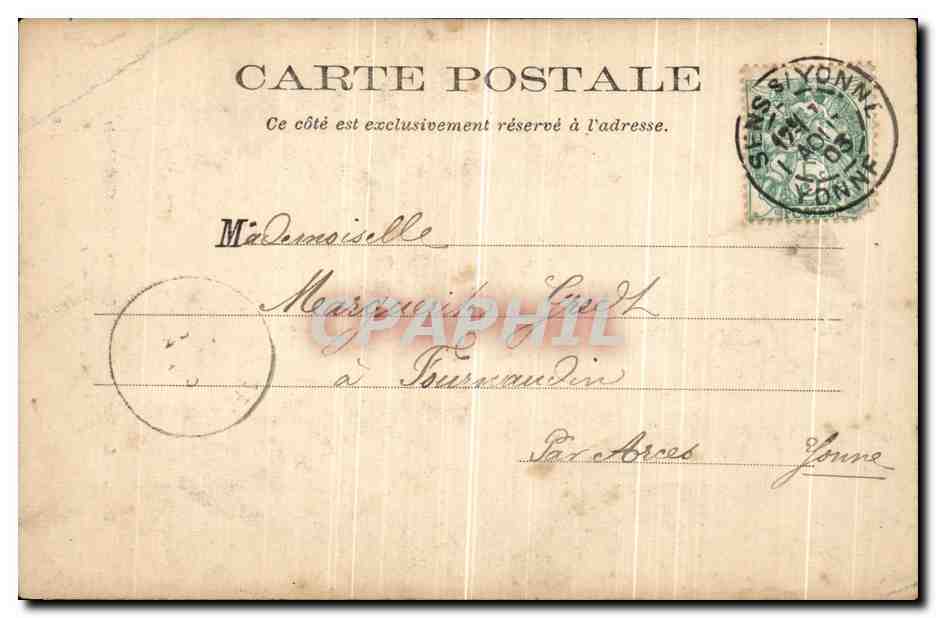 CARTE POSTALE
Ce côté est exclusivement réservé à l'adresse.
SENS S/YONNE
AOUT
03
YONNE
Mademoiselle
Marguerite
CPAPHIL
à Fournaudin
Par Arces Yonne